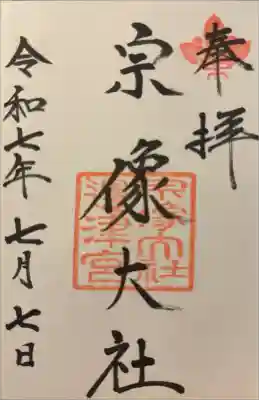 奉拝
宗像大社
令和七年七月七日
宗像大社
邊津宮